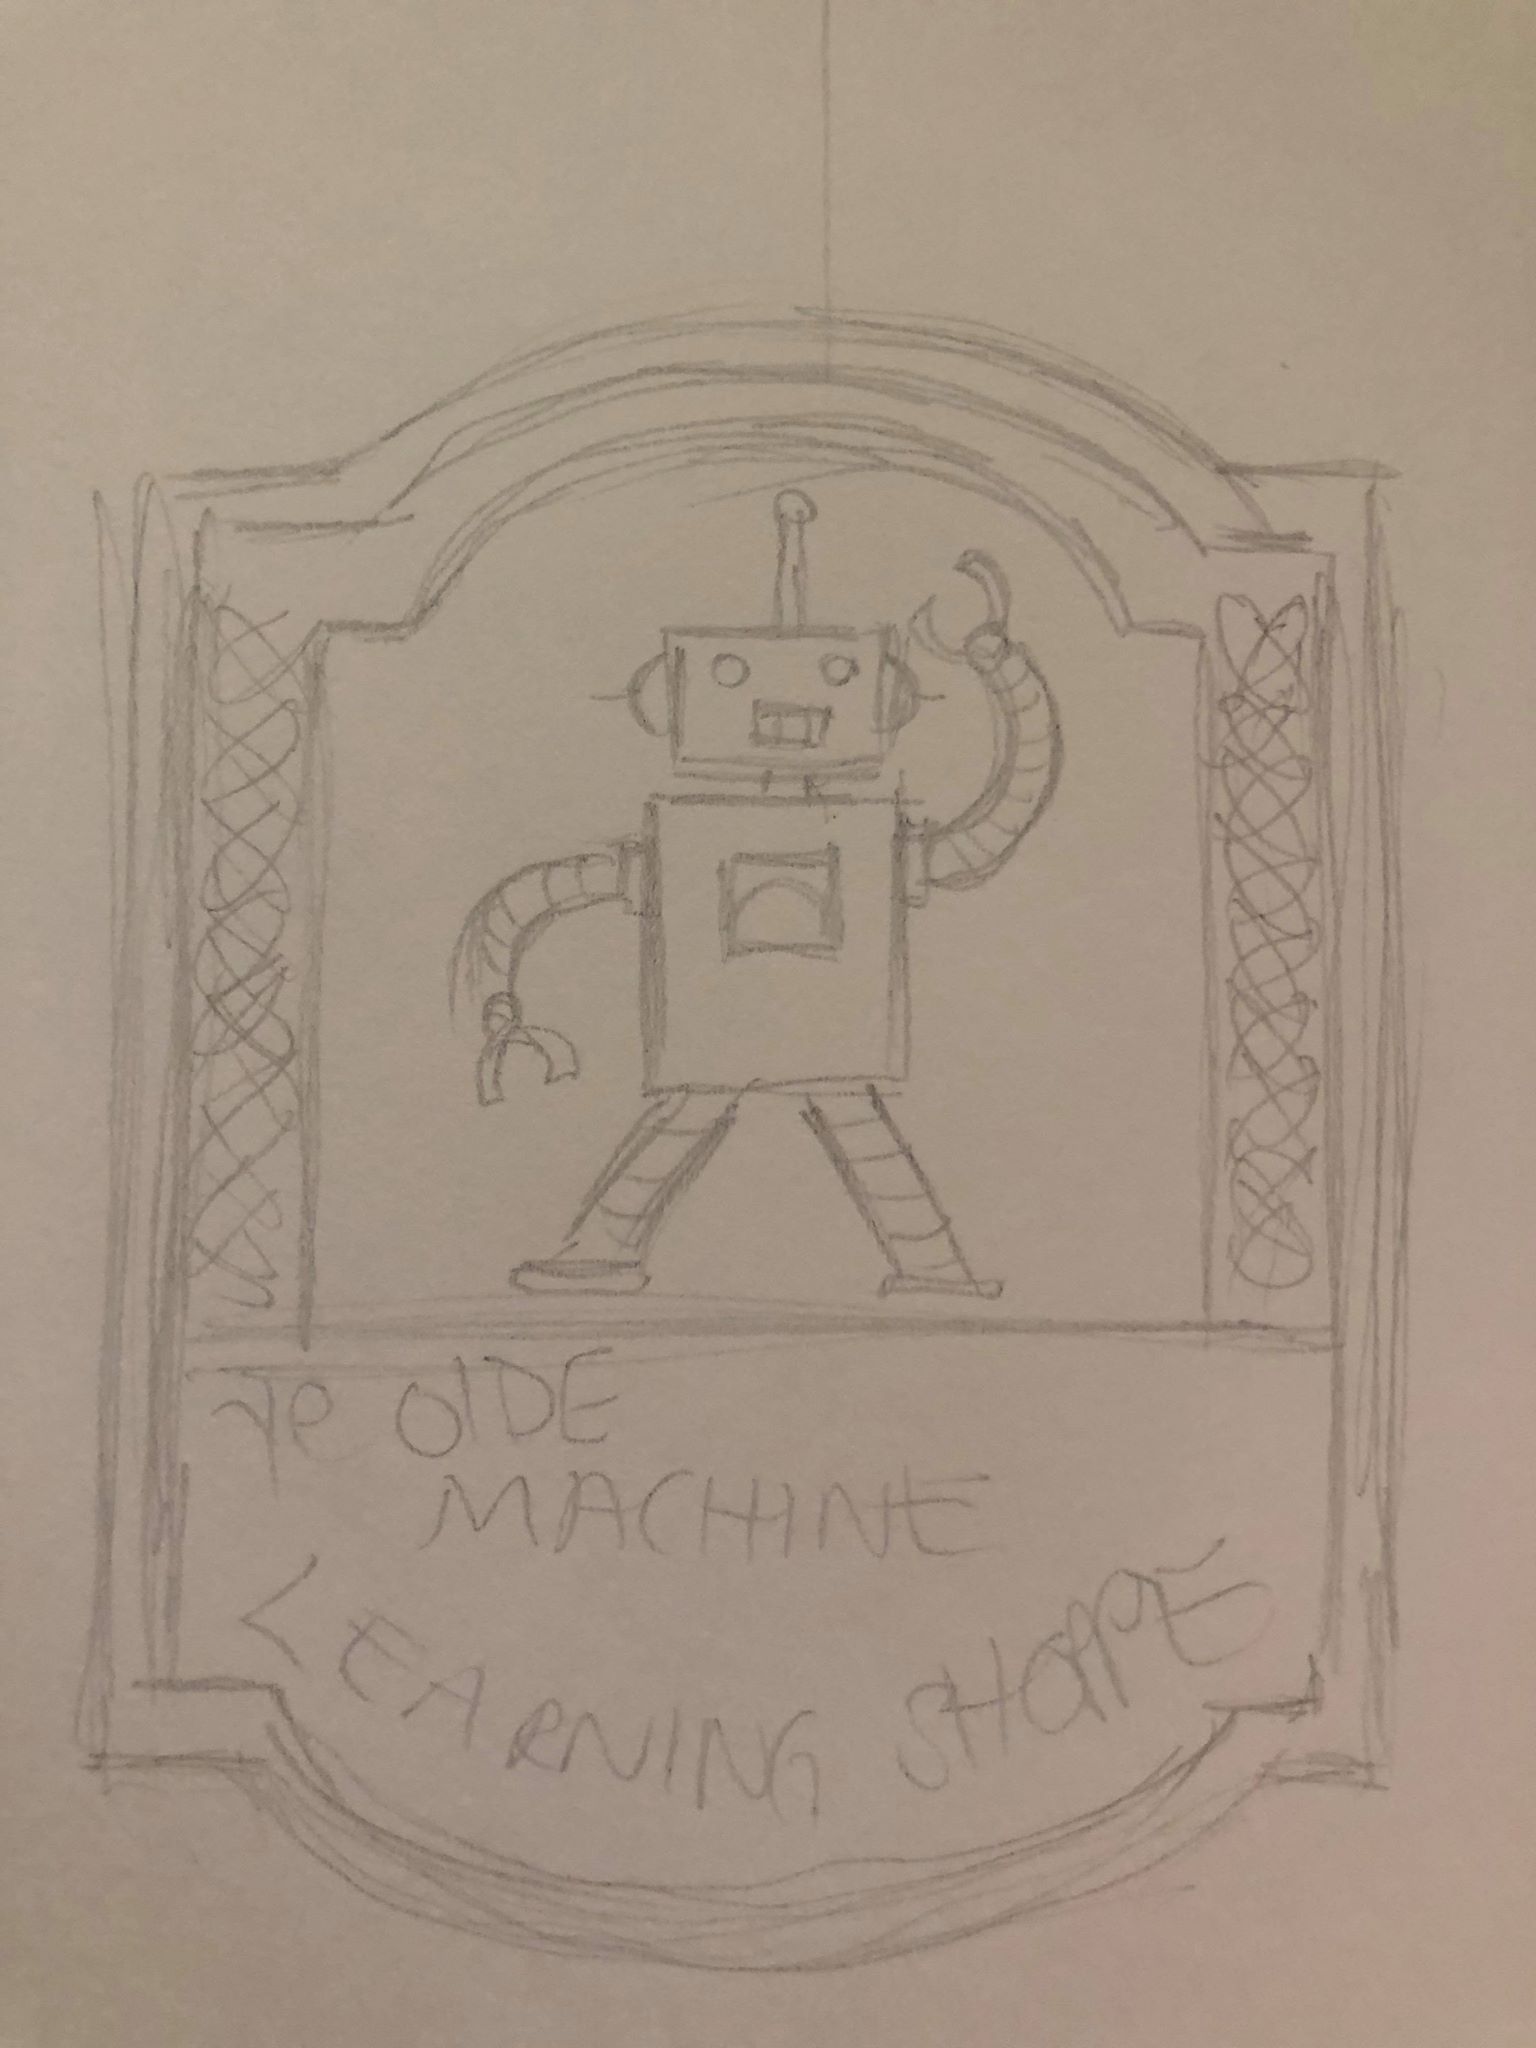 Ye OlDE
MACHINE
LEARNING SHOPPE